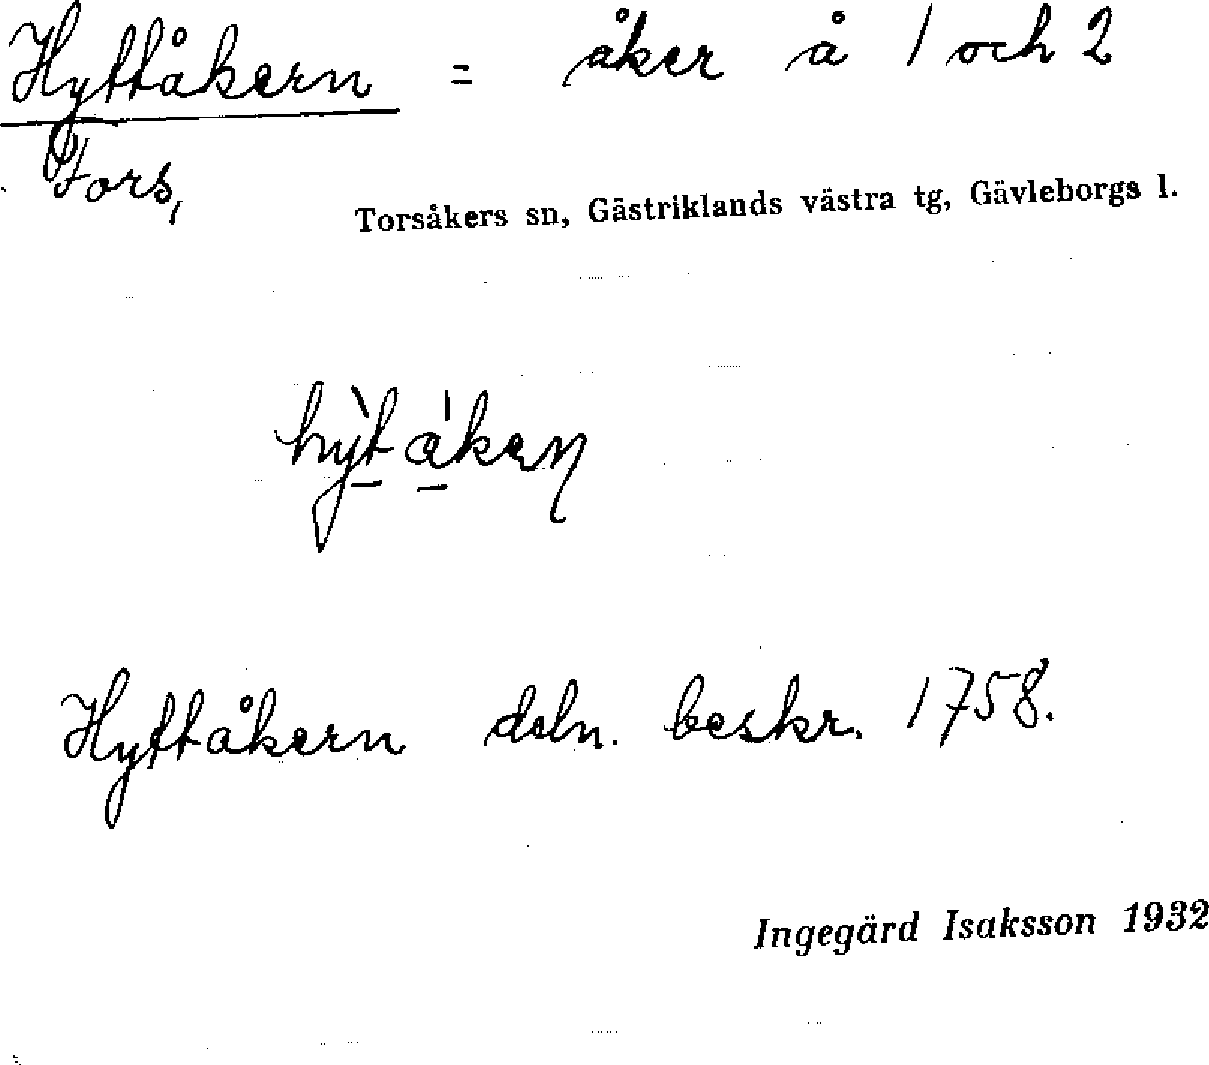 Hyttåkern = åker å 1 och 2
Fors,
Torsåkers sn, Gästriklands västra tg, Gävleborgs l.
Hyttåkern deln. beskr. 1758.
Ingegärd Isaksson 1932